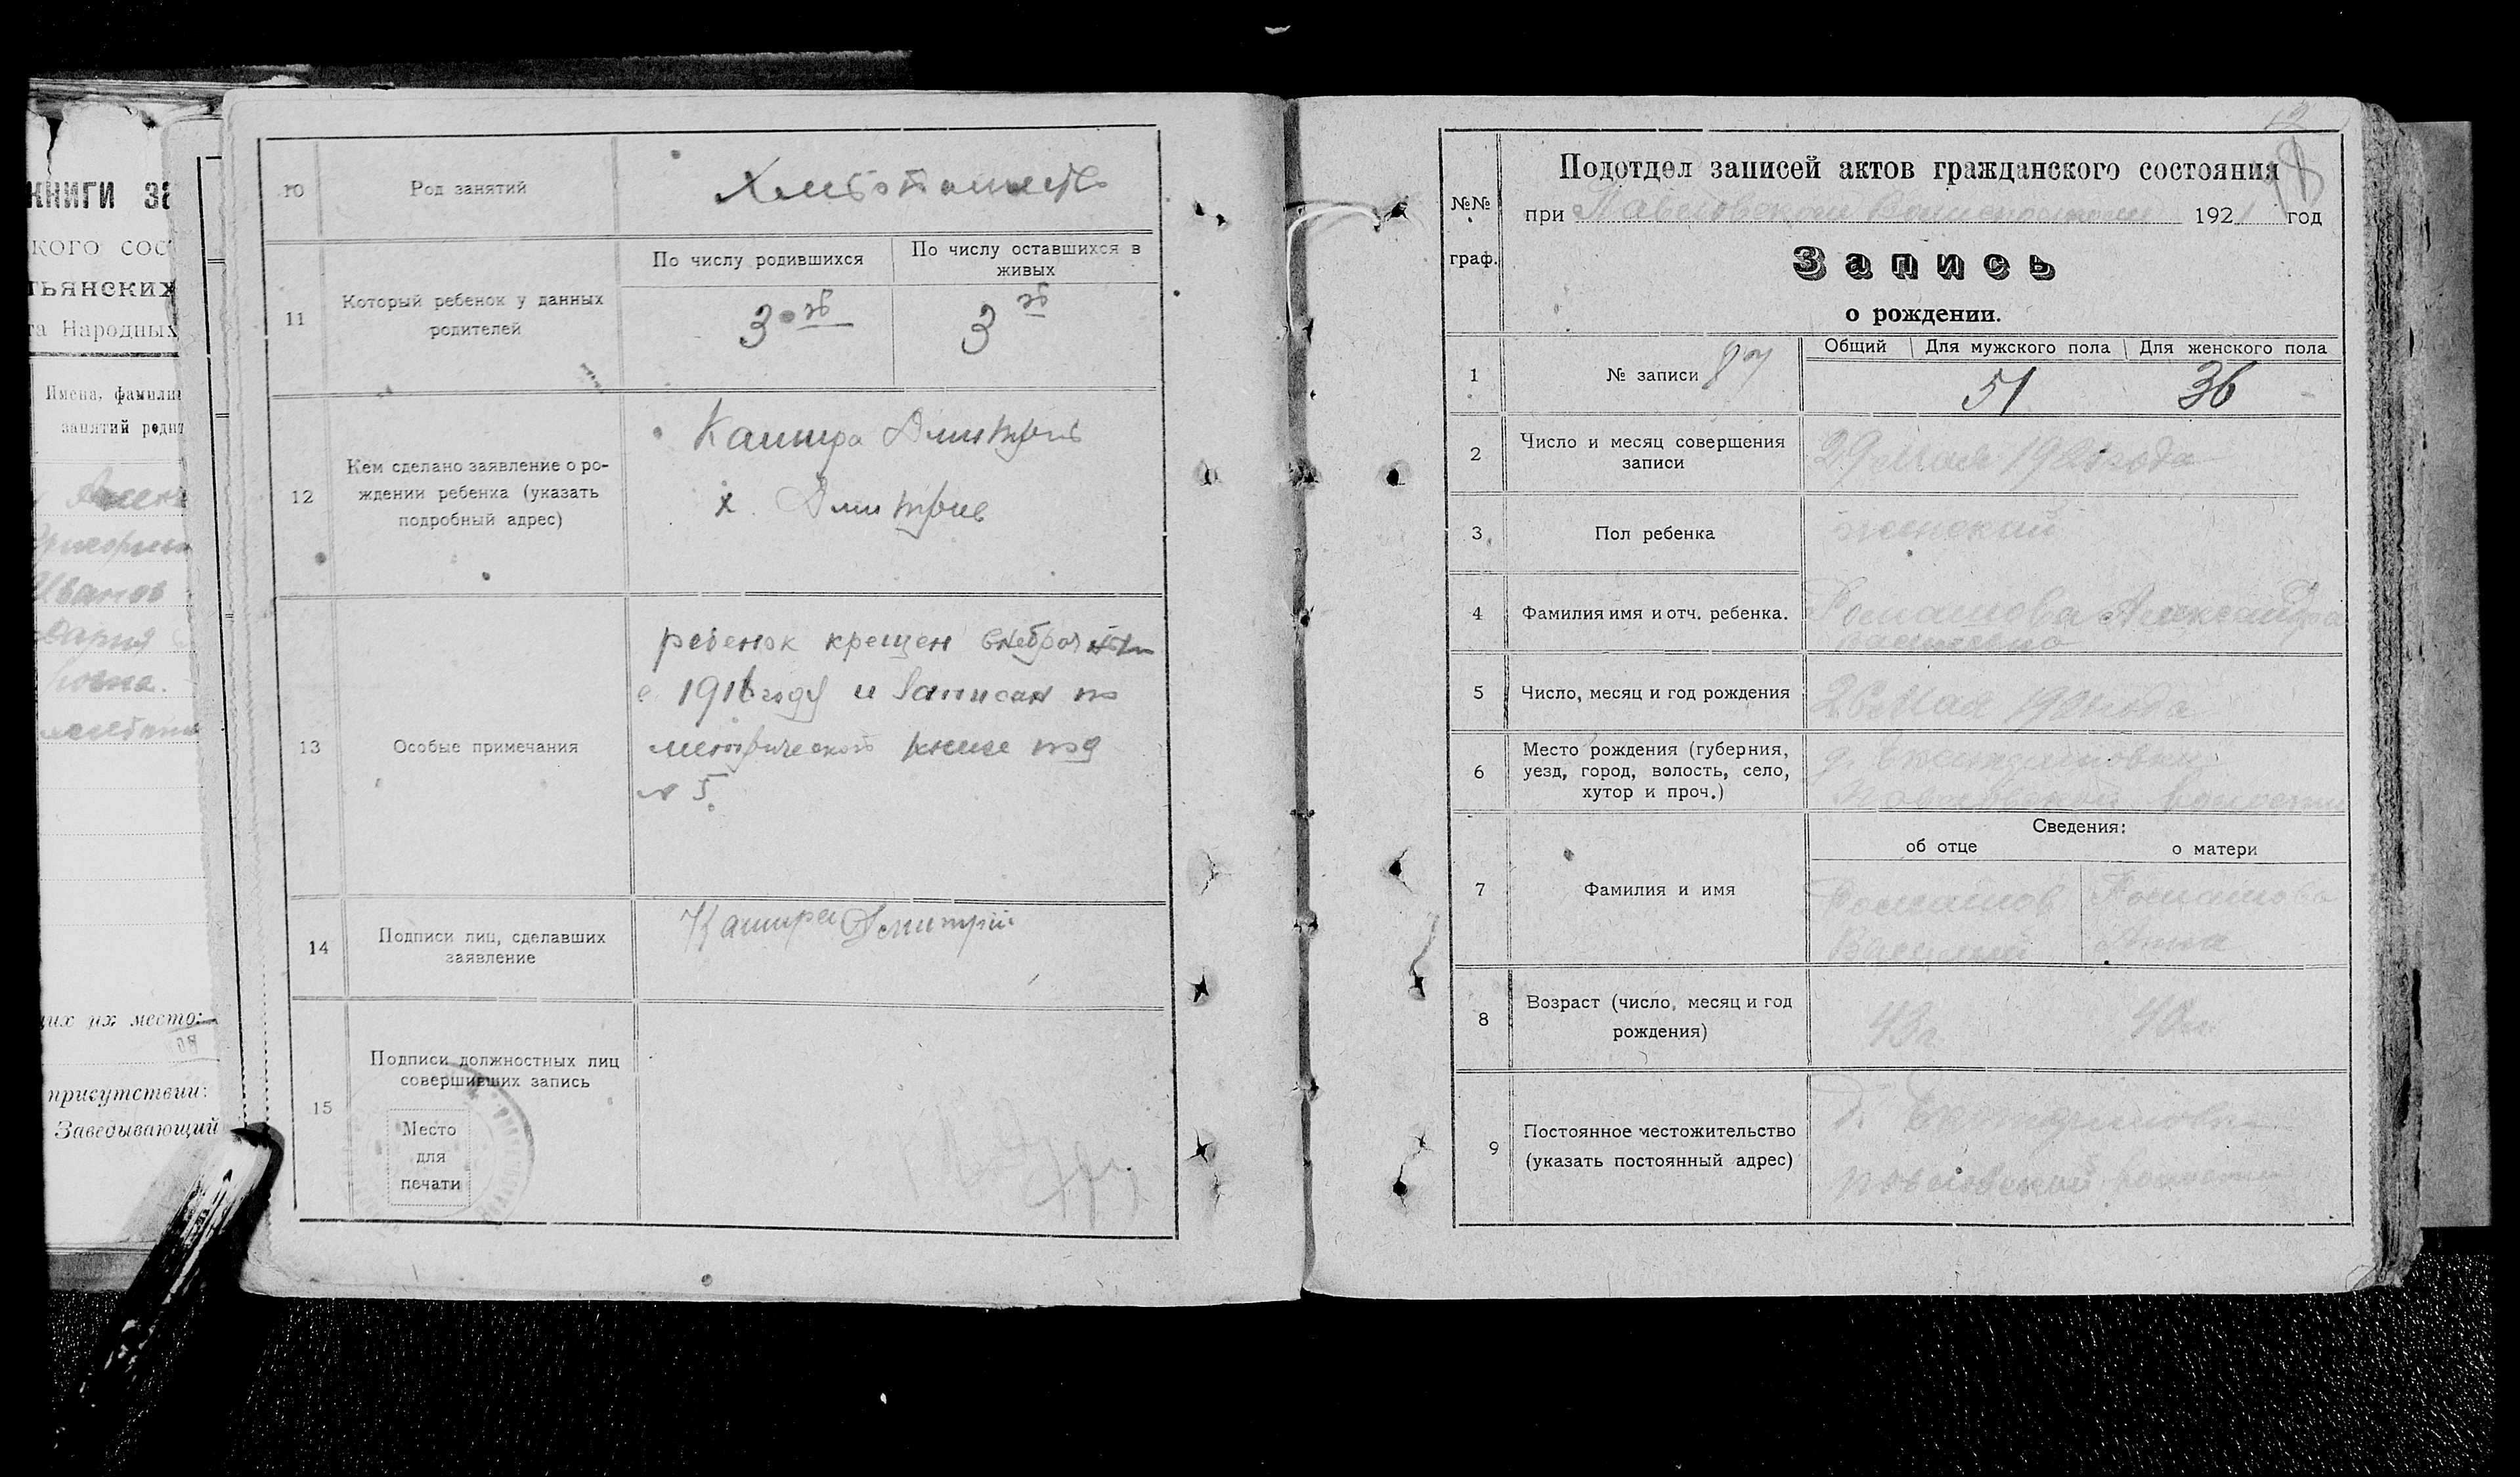 КНИГИ ЗА
кого сос
тьянских
та Народных
Имена, фамилии
занятий роди
Иванов
их их место:
присутствии:
Заведывающий
10 Род занятий Хлебопашество
11 Который ребенок у данных родителей
По числу родившихся По числу оставшихся в живых
3 3
12 Кем сделано заявление о ро-
ждении ребенка (указать
подробный адрес)
Кашира Дмитрий
х. Дмитрие
13 Особые примечания
ребенок крещен
1916 году и записан по
метрической книге под
№ 5.
14 Подписи лиц, сделавших
заявление
Кашира Дмитрий
15 Подписи должностных лиц
совершивших запись
Место
для
печати
18
№№
граф.
Подотдел записей актов гражданского состояния
при 1921 год
Запись
о рождении.
1 № записи 87
Общий Для мужского пола Для женского пола
51 36
2 Число и месяц совершения
записи
29 мая 1921 года
3 Пол ребенка женский
4 Фамилия имя и отч. ребенка. Ромашова Александра
5 Число, месяц и год рождения 26 мая 1921 года
6 Место рождения (губерния,
уезд, город, волость, село,
хутор и проч.)
д. Екатериновки
Павловской волости
Сведения:
об отце о матери
7 Фамилия и имя
Ромашов Ромашова
Василий Анна
8 Возраст (число, месяц и год
рождения)
43 г. 40 л.
9 Постоянное местожительство
(указать постоянный адрес)
д. Екатериновка
Павловской волости